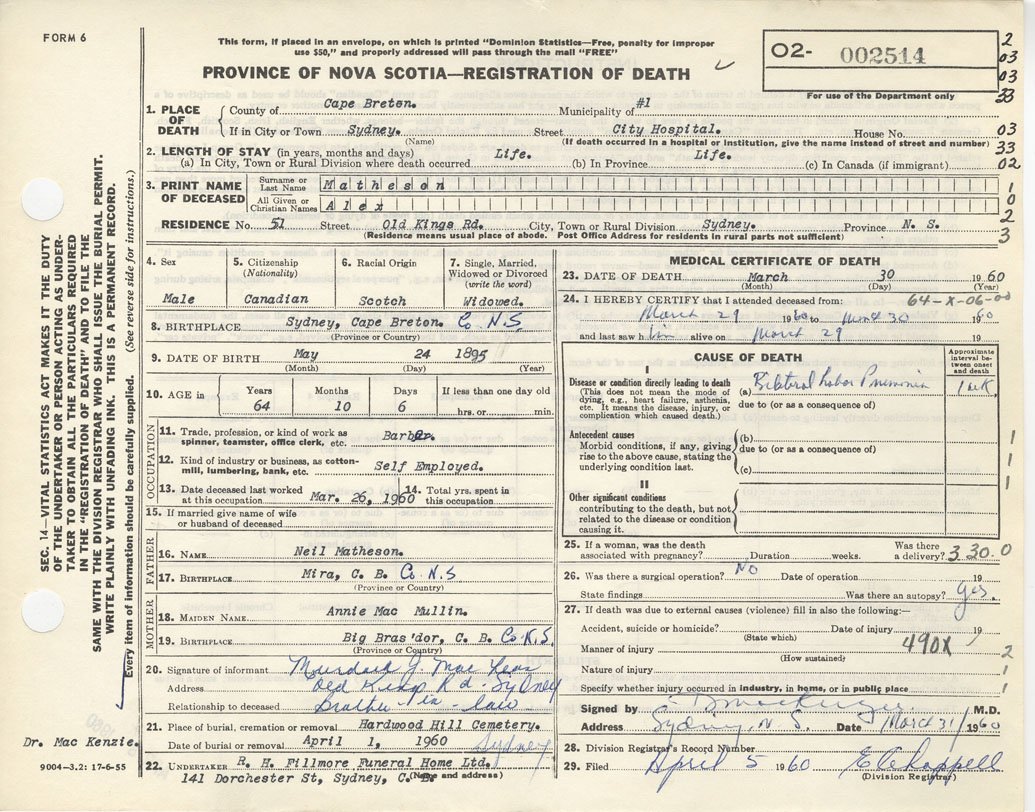 FORM 6
This form, if placed in an envelope, on which is printed "Dominion Statistics—Free, penalty for improper
use $50," and properly addressed will pass through the mail "FREE"
PROVINCE OF NOVA SCOTIA—REGISTRATION OF DEATH
O2- 002514
For use of the Department only
2
03
03
33
1. PLACE OF DEATH
County of Cape Breton. Municipality of #1
If in City or Town Sydney. Street City Hospital. House No. 03
(Name) (If death occurred in a hospital or Institution, give the name instead of street and number) 33
2. LENGTH OF STAY (in years, months and days)
(a) In City, Town or Rural Division where death occurred Life. (b) In Province Life. (c) In Canada (if immigrant) 02
3. PRINT NAME OF DECEASED
Surname or Last Name Matheson 1
All Given or Christian Names Alex 0
2
RESIDENCE No. 51 Street Old Kings Rd. City, Town or Rural Division Sydney. Province N. S. 3
(Residence means usual place of abode. Post Office Address for residents in rural parts not sufficient)
4. Sex
Male
5. Citizenship (Nationality)
Canadian
6. Racial Origin
Scotch
7. Single, Married, Widowed or Divorced (write the word)
Widowed.
8. BIRTHPLACE Sydney, Cape Breton. Co N.S
(Province or Country)
9. DATE OF BIRTH May 24 1895
(Month) (Day) (Year)
10. AGE in
Years 64
Months 10
Days 6
If less than one day old
hrs. or min.
OCCUPATION
11. Trade, profession or kind of work as spinner, teamster, office clerk, etc. Barber.
12. Kind of industry or business, as cotton-mill, lumbering, bank, etc. Self Employed.
13. Date deceased last worked at this occupation Mar. 26, 1960
14. Total yrs. spent in this occupation
15. If married give name of wife or husband of deceased
FATHER
16. NAME Neil Matheson.
17. BIRTHPLACE Mira, C. B. Co N.S
(Province or Country)
MOTHER
18. MAIDEN NAME Annie Mac Mullin.
19. BIRTHPLACE Big Bras'dor, C. B. Co N.S.
(Province or Country)
20. Signature of informant Murdock J. Mac Lean
Address Old Kings Rd. Sydney
Relationship to deceased Brother-in-law
21. Place of burial, cremation or removal Hardwood Hill Cemetery.
Date of burial or removal April 1, 1960 Sydney
22. UNDERTAKER R. H. Fillmore Funeral Home Ltd.
141 Dorchester St, Sydney, C. B. (Name and address)
MEDICAL CERTIFICATE OF DEATH
23. DATE OF DEATH March 30 1960
(Month) (Day) (Year)
64-X-06-00
24. I HEREBY CERTIFY that I attended deceased from:
March 29 1960 to March 30 1960
and last saw him alive on March 29 19
CAUSE OF DEATH
Approximate interval between onset and death
I
Disease or condition directly leading to death
(This does not mean the mode of dying, e.g., heart failure, asthenia, etc. It means the disease, injury, or complication which caused death.)
(a) Bilateral Lobar Pneumonia 1 wk
due to (or as a consequence of)
Antecedent causes
Morbid conditions, if any, giving rise to the above cause, stating the underlying condition last.
(b)
due to (or as a consequence of)
(c)
1
1
1
II
Other significant conditions
contributing to the death, but not related to the disease or condition causing it.
25. If a woman, was the death associated with pregnancy? Duration weeks. Was there a delivery? 3 30. 0
26. Was there a surgical operation? No Date of operation 19
State findings Was there an autopsy? yes.
27. If death was due to external causes (violence) fill in also the following:—
Accident, suicide or homicide? Date of injury 19
(State which)
Manner of injury 490X 2
(How sustained)
Nature of injury 1
Specify whether injury occurred in industry, in home, or in public place 1
Signed by M.D.
Address Sydney, N. S. Date March 31/ 1960
28. Division Registrar's Record Number
29. Filed April 5 1960 E Chappell
(Division Registrar)
SEC. 14—VITAL STATISTICS ACT MAKES IT THE DUTY
OF THE UNDERTAKER OR PERSON ACTING AS UNDER-
TAKER TO OBTAIN ALL THE PARTICULARS REQUIRED
IN THE "REGISTRATION OF DEATH" AND TO FILE THE
SAME WITH THE DIVISION REGISTRAR WHO SHALL ISSUE THE BURIAL PERMIT.
WRITE PLAINLY WITH UNFADING INK. THIS IS A PERMANENT RECORD.
Every item of information should be carefully supplied. (See reverse side for instructions.)
Dr. Mac Kenzie.
9004-3.2: 17-6-55